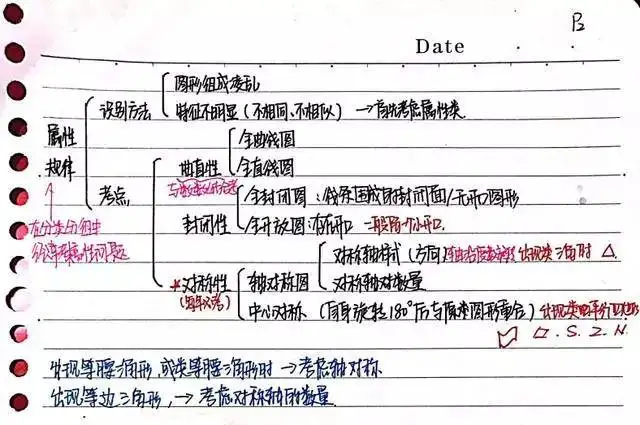 P2
Date
图形组成凌乱
识别方法
特征不明显(不相同、不相似) →首先考虑属性类
属性
规律
全曲线图
曲直性
全直线图
考点
全封闭图:线条围成的封闭面/无开口图形
封闭性
全开放图:有开口 一般留一个小开口.
在分类分组中
经常考属性问题
对称轴样式(方向) 出现类三角时 △
*对称性
轴对称图
对称轴对数量
(每年必考)
中心对称 (自身旋转180°后与原来图形重合) 出现类平行四边形
▱.S.Z.N.
出现等腰三角形,或类等腰三角形时→考虑轴对称
出现等边三角形,→考虑对称轴的数量